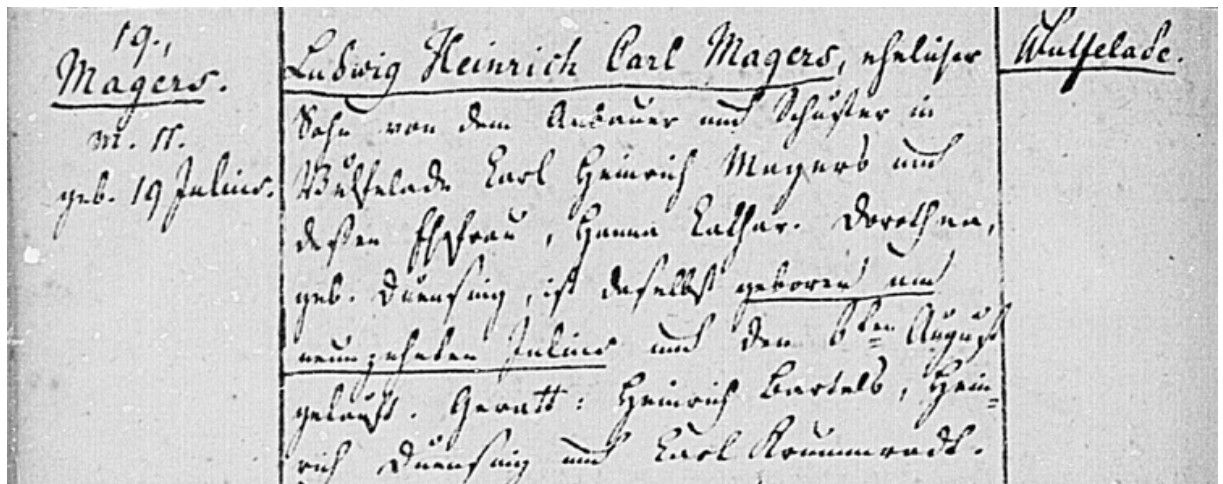 19.,
Magers.
geb. 19 Julius.
Ludwig Heinrich Carl Magers, ehelicher
Sohn von dem Anbauer und Schuster in
Wulfelade Carl Heinrich Magers und
deßen Ehefrau, Hanna Cathar. Dorothea,
geb. Duensing, ist daselbst geboren am
neunzehnten Julius und den 6ten August
getauft. Gevatt: Heinrich Bartels, Hein=
rich Duensing und Carl
Wulfelade.